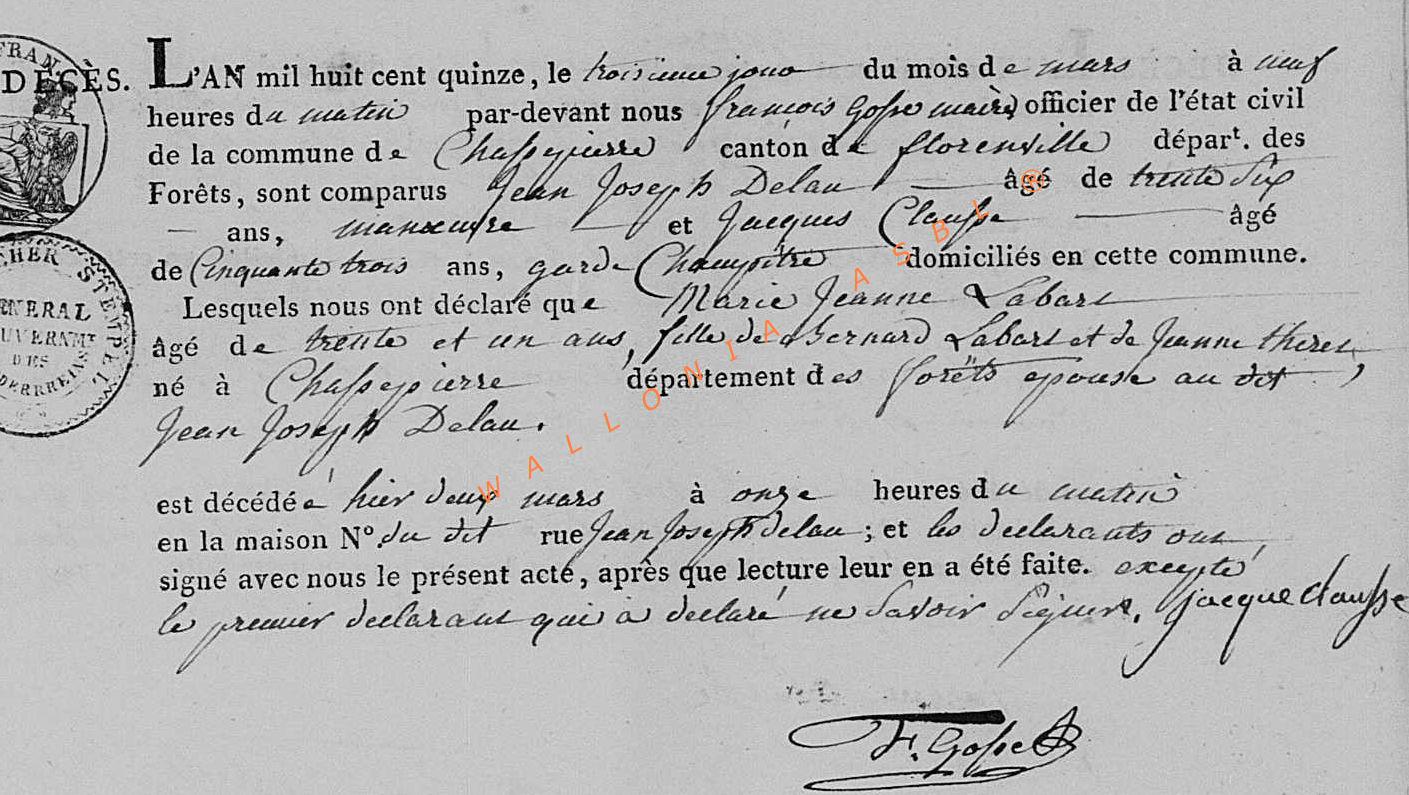 FRAN
DÉCÈS.
L'AN mil huit cent quinze, le troisieme jour du mois de mars à neuf
heures du matin par-devant nous françois Gosse maire officier de l'état civil
de la commune de Chassepierre canton de florenville départ. des
Forêts, sont comparus Jean Joseph Delau âgé de trente six
ans, manœuvre et Jacques Clausse âgé
de Cinquante trois ans, garde Champêtre domiciliés en cette commune.
Lesquels nous ont déclaré que Marie Jeanne Labart
âgé de trente et un ans, fille de Bernard Labart et de Jeanne
né à Chassepierre département des forêts epouse au dit
Jean Joseph Delau.
est décédée hier deux mars à onze heures du matin
en la maison N°. du dit rue Jean Joseph delau ; et les declarants ont
signé avec nous le présent acte, après que lecture leur en a été faite. excepté
le premier declarant qui a declaré ne savoir signer. jacque clausse
F. Gosse
CHER STEMPEL
NERAL
UVERNMT
DES
DERRREINS
WALLONIA ASBL @